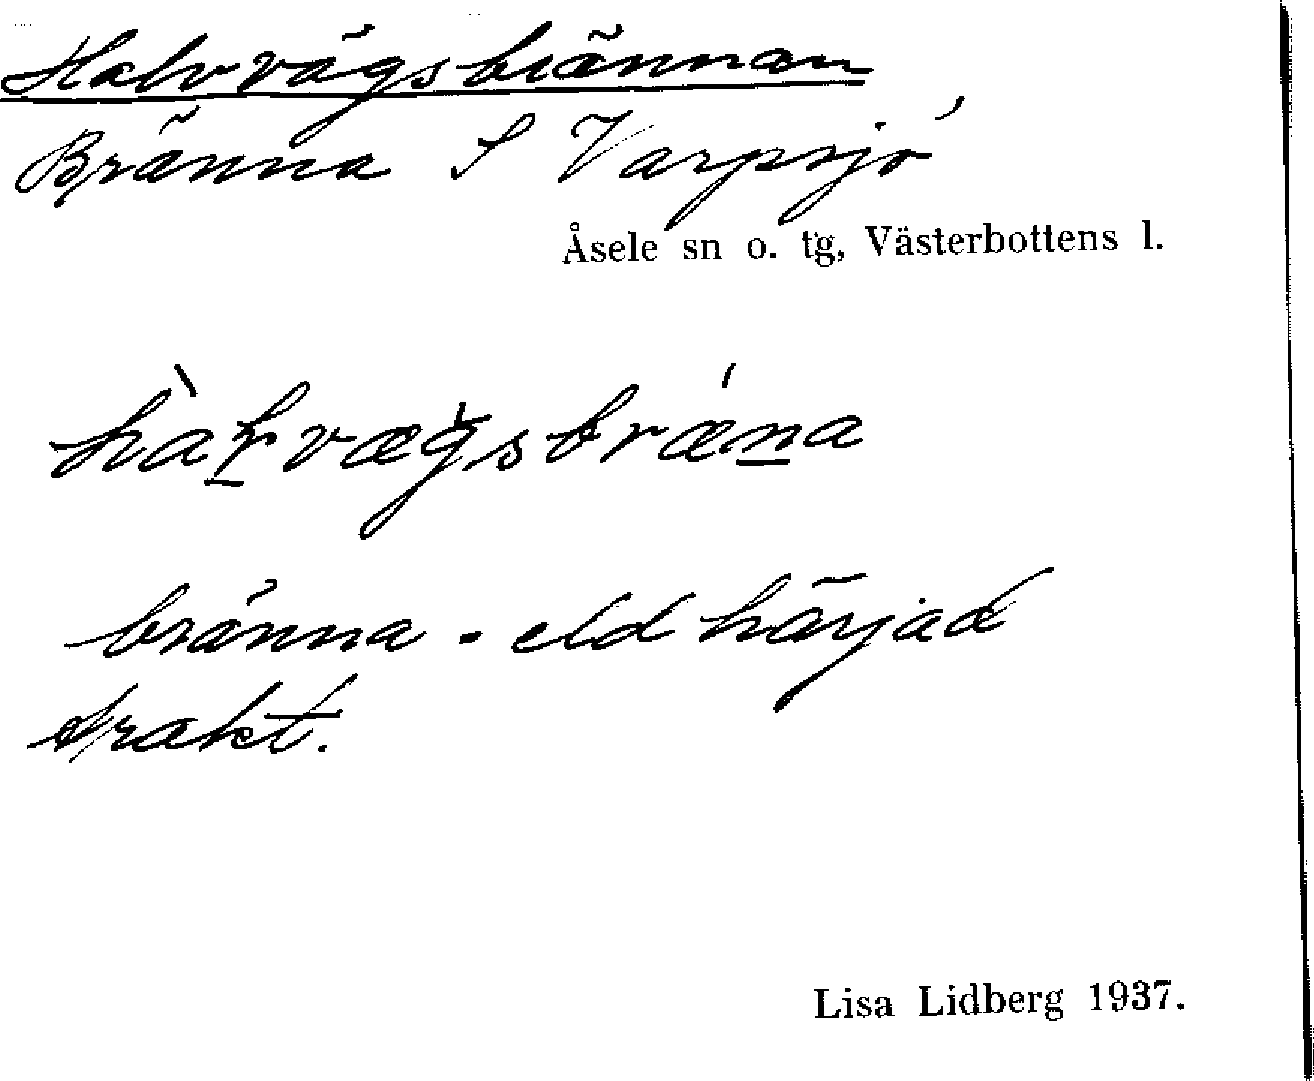 Halvvägsbrännan
Bränna S Varpsjö
Åsele sn o. tg, Västerbottens l.
hàḻvægsbrǽṉa
bränna - eldhärjad
trakt.
Lisa Lidberg 1937.